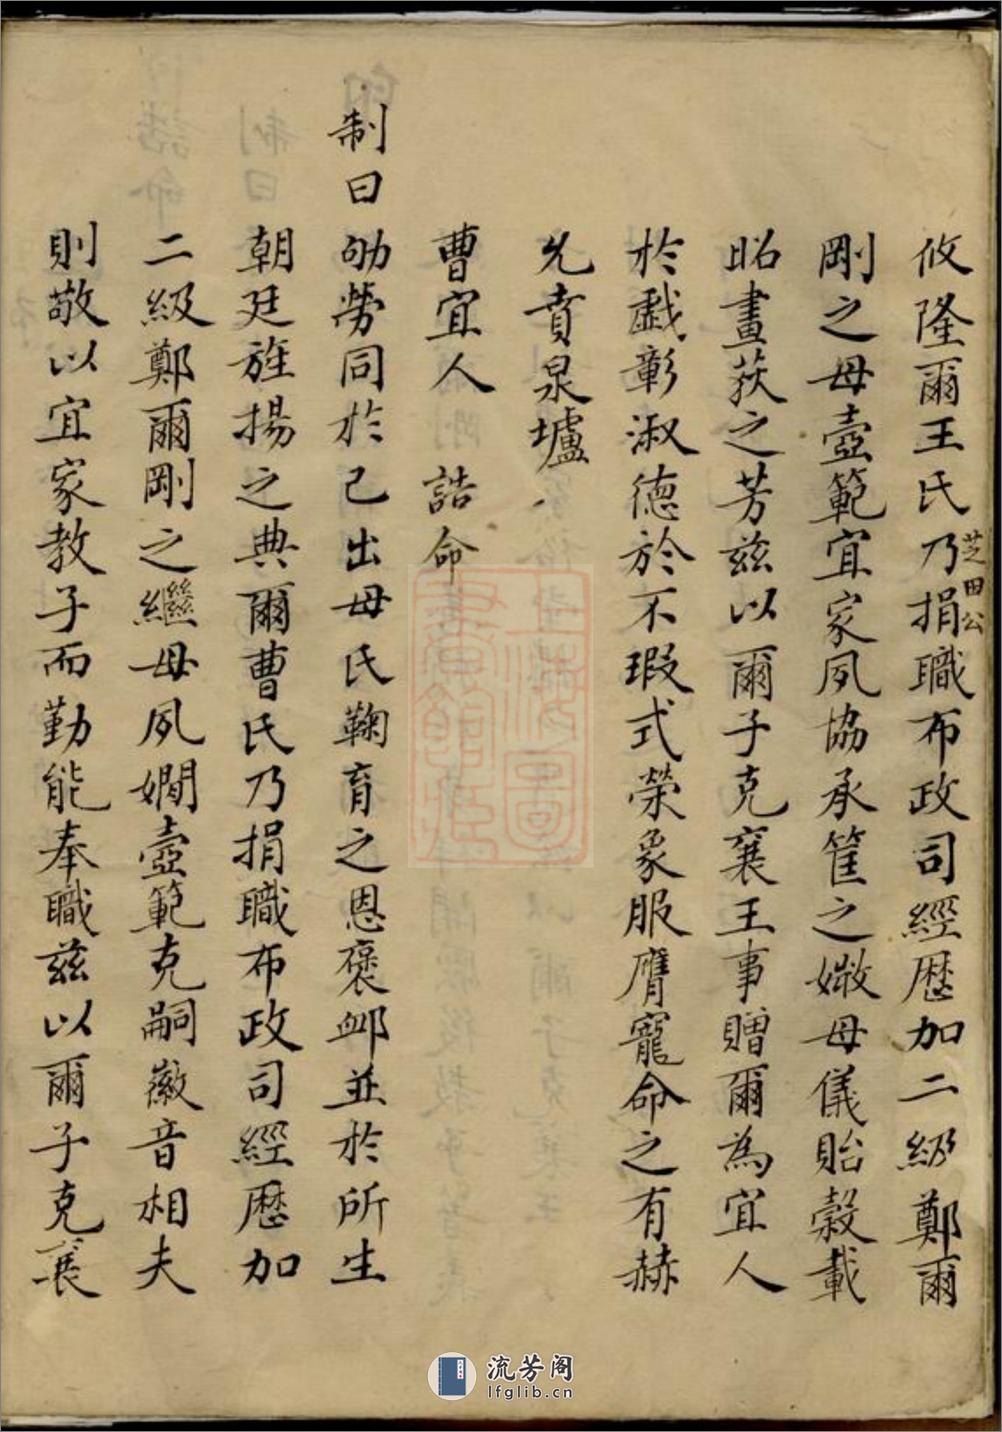 攸隆爾王氏乃捐職布政司經歷加二級鄭爾
芝田公
剛之母壼範宜家夙協承筐之媺母儀貽穀載
昭畫荻之芳茲以爾子克襄王事贈爾為宜人
於戲彰淑德於不瑕式榮象服膺寵命之有赫
允賁泉壚
曹宜人 誥命
制曰劬勞同於己出母氏鞠育之恩褒衈並於所生
朝廷旌揚之典爾曹氏乃捐職布政司經歷加
二級鄭爾剛之繼母夙嫻壼範克嗣徽音相夫
則敬以宜家教子而勤能奉職茲以爾子克襄
流芳阁
lfglib.cn